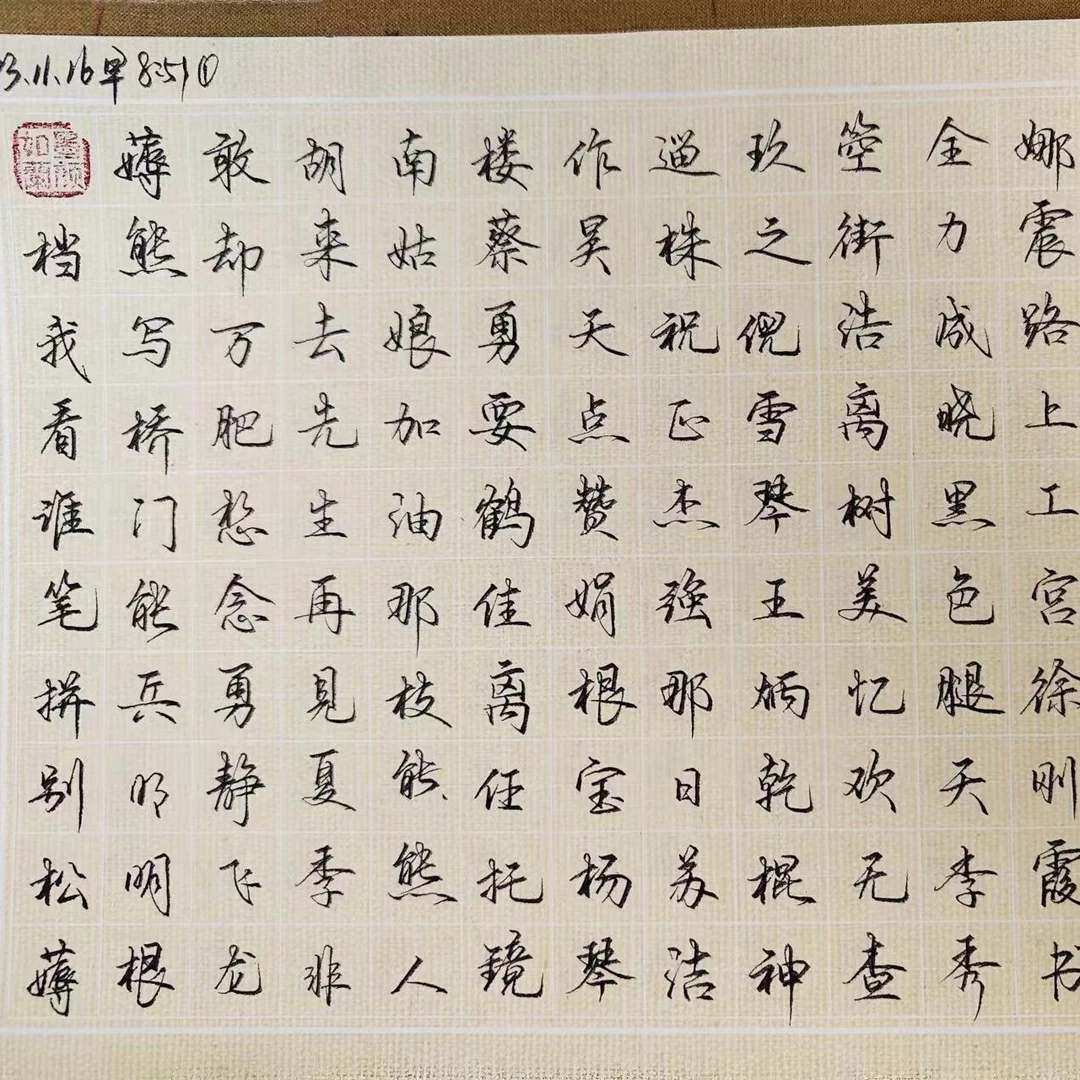 23.11.16早8:51①
如蘭
档我看谁笔拼别松薄
薄熊写桥门能兵明根
敢却万肥愁念勇静飞龙
胡来去先生再见夏季非
南姑娘加油那枝能熊人
楼蔡勇要鹤佳离任托镜
作吴天点赞娟根宝杨琴
遛株祝正杰强那日苏洁
玖之倪雪琴王炳乾棍神
箜街浩离树美忆欢无查
全力成晓黑色腿天李秀
娜震路上工宫徐刚霞书